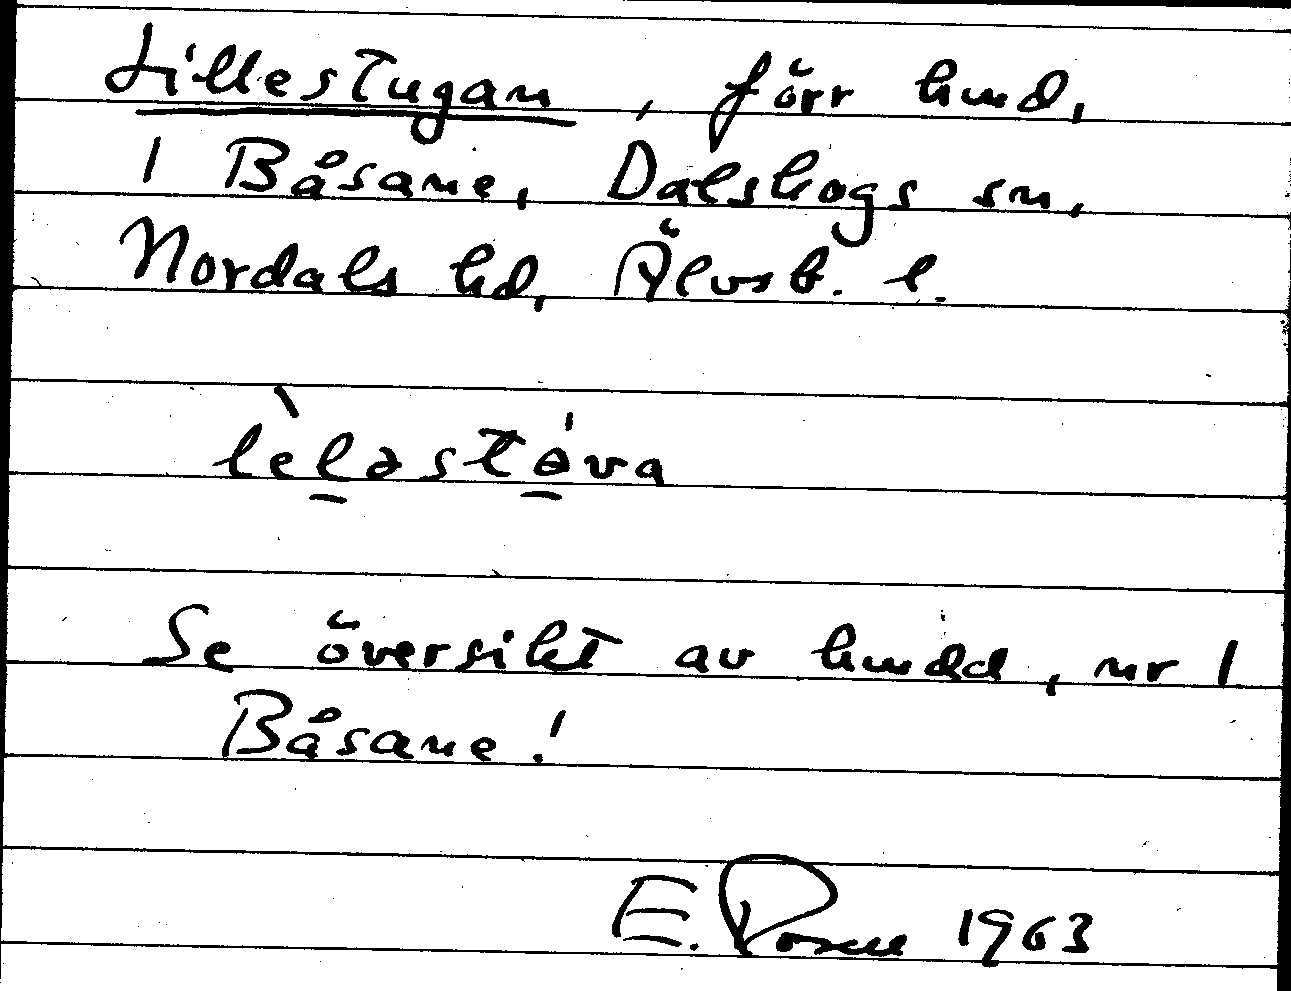 Lillestugan, förr hmd,
1 Båsane, Dalskogs sn,
Nordals hd, Älvsb. l.
lèləstə́va
Se översikt av hmdd, nr 1
Båsane!
E. Rosen 1963